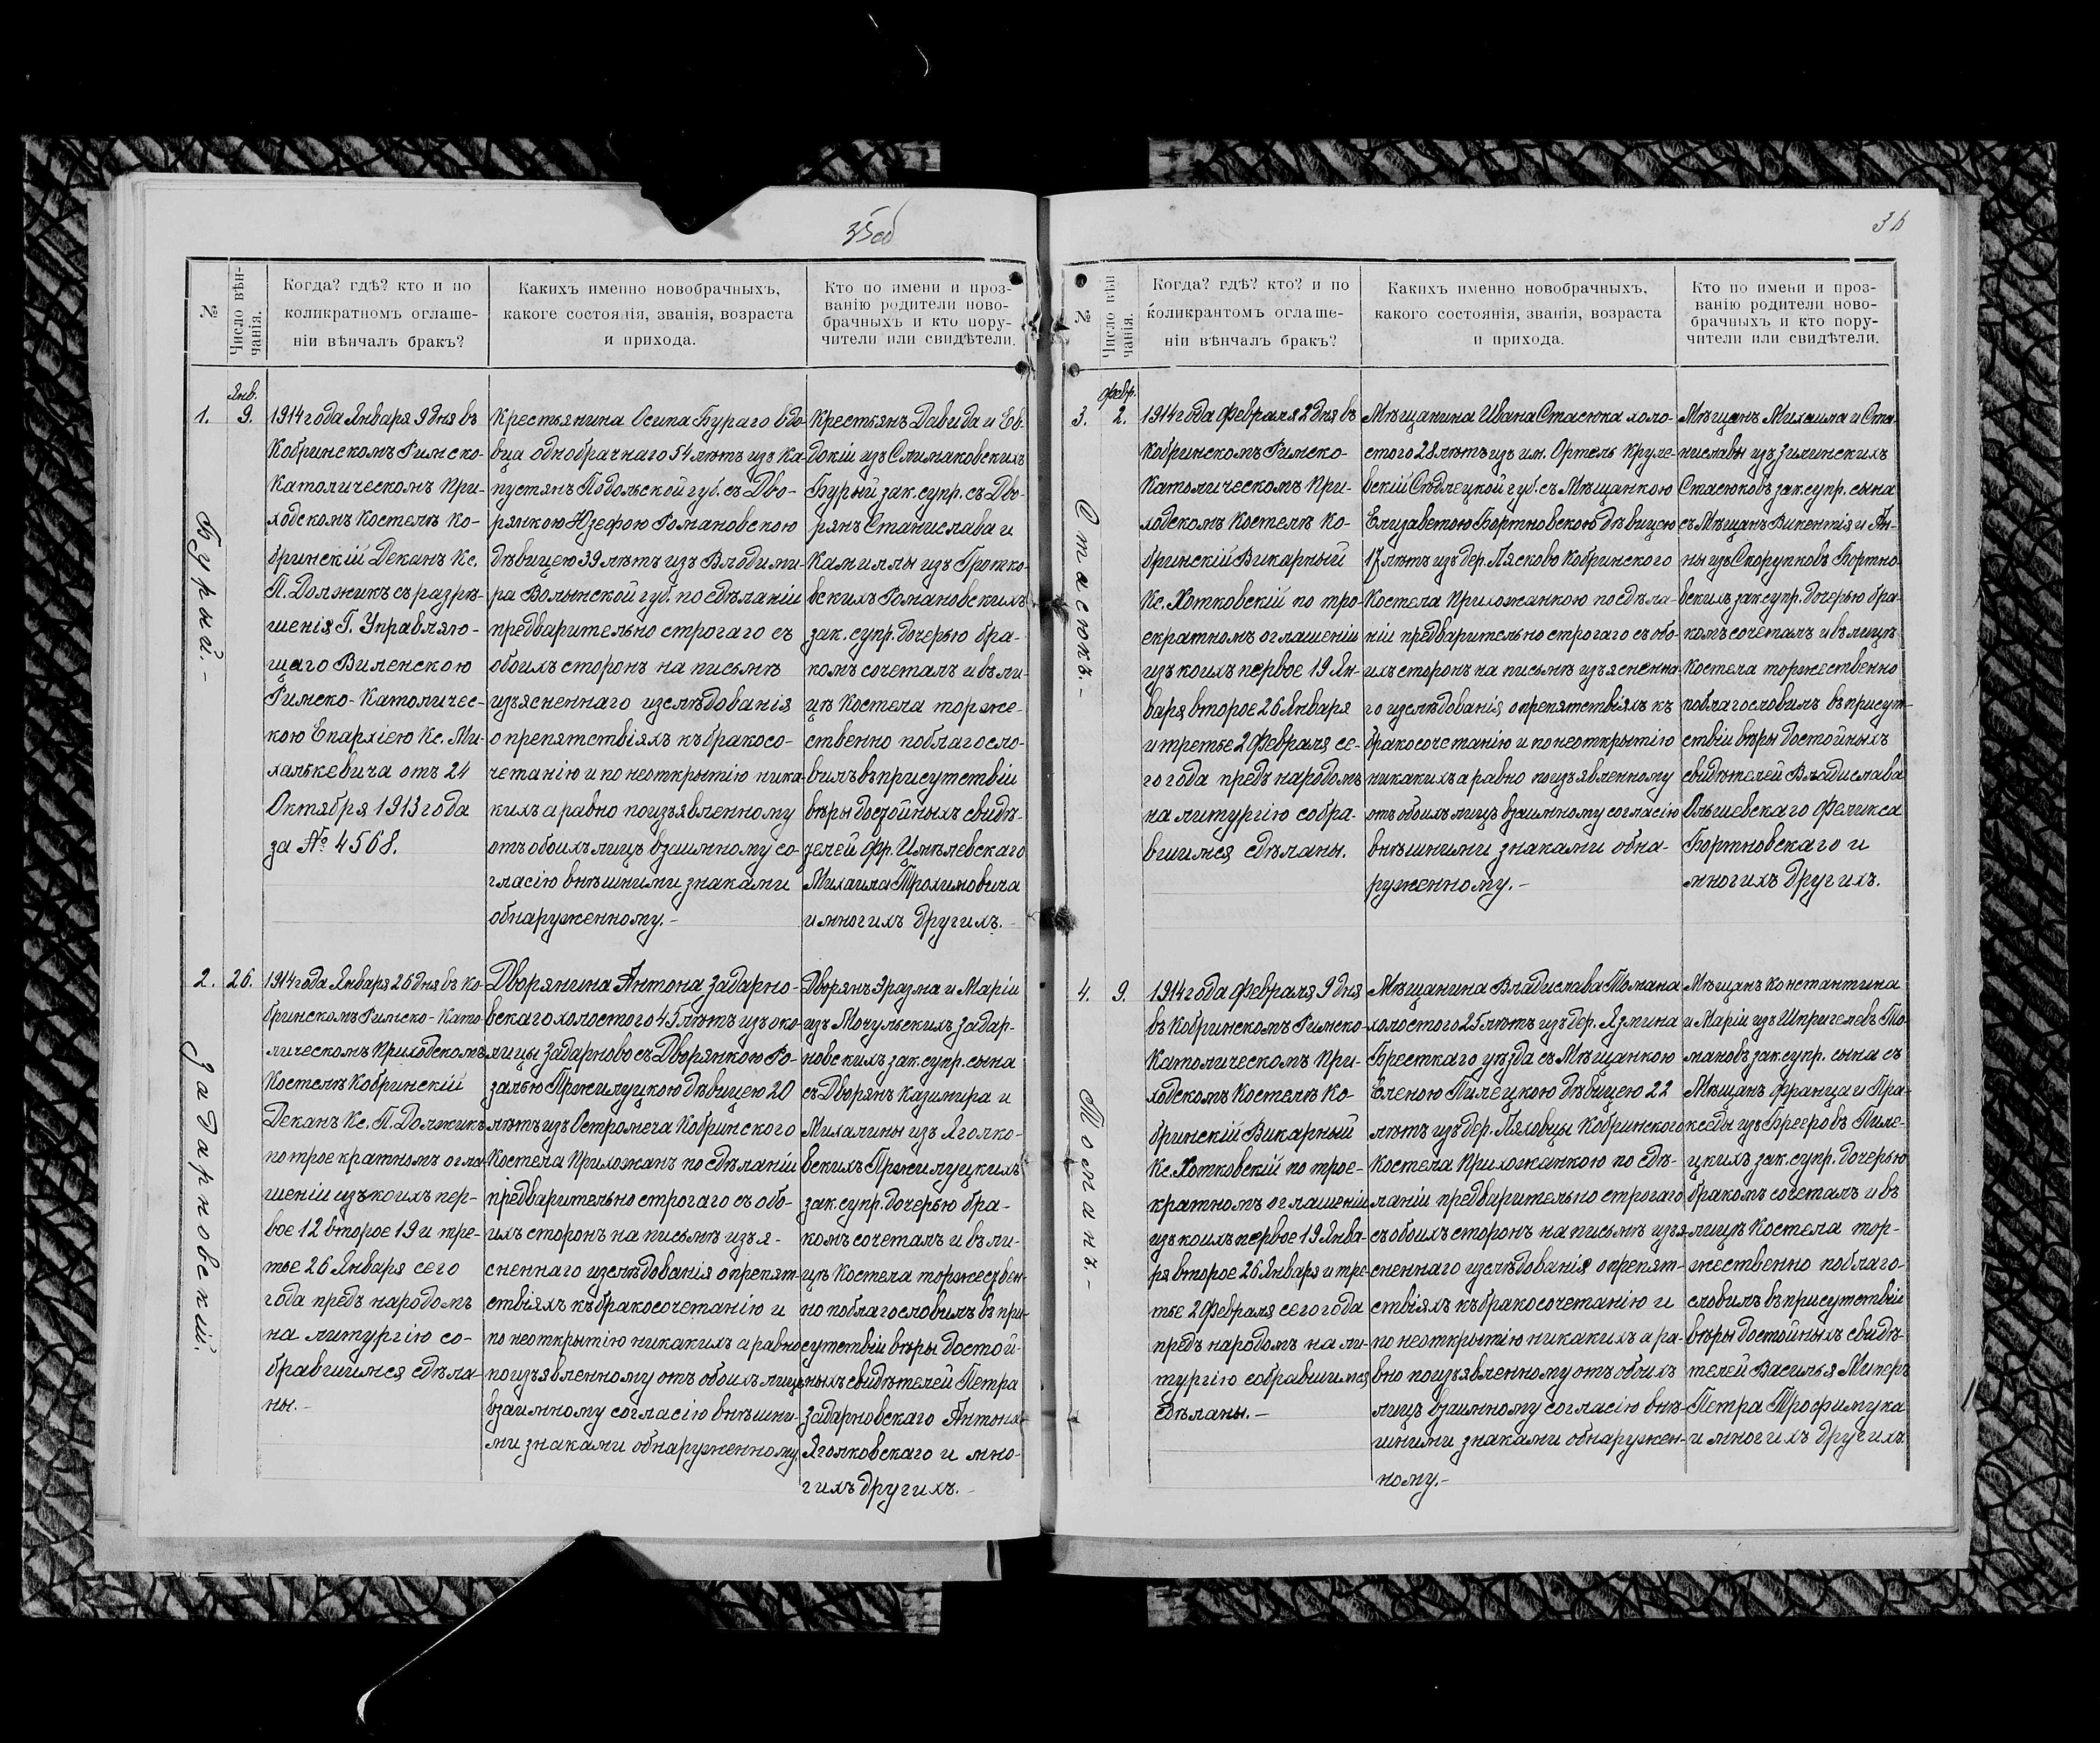 35об
№
Число вѣн-
чанія.
Когда? гдѣ? кто и по
коликратномъ оглаше-
ніи вѣнчалъ бракъ?
Какихъ именно новобрачныхъ,
какоге состоянія, званія, возраста
и прихода.
Кто по имени и проз-
ванію родители ново-
брачныхъ и кто пору-
чители или свидѣтели.
Бурый.-
1.
Янв.
9.
1914 года Января 9 дня въ
Кобринскомъ Римско-
Католическомъ При-
ходскомъ Костелѣ Ко-
бринскій Деканъ Кс.
П. Должикъ съ разрѣ-
шенія Г. Управляю-
щаго Виленскою
Римско-Католичес-
кою Епархіею Кс. Ми-
халькевича отъ 24
Октября 1913 года
за № 4568.
Крестьянина Осипа Бураго вдо-
вца однобрачнаго 51 лѣтъ изъ Ка-
пустянъ Подольской губ. съ Дво-
рянкою Юзефою Романовскою
дѣвицею 39 лѣтъ изъ Владими-
ра Волынской губ. по сдѣланіи
предварительно строгаго съ
обоихъ сторонъ на письмѣ
изъясненнаго изслѣдованія
о препятствіяхъ къ бракосо-
четанію и по неоткрытію ника-
кихъ а равно по изъявленному
отъ обоихъ лицъ взаимному со-
гласію внѣшними знаками
обнаруженному.-
Крестьянъ Давида и Ев-
докіи изъ Слимаковскихъ
Бурый зак. супр. съ Дво-
рянъ Станислава и
Камиллы изъ Гротко-
вскихъ Романовскихъ
зак. супр. дочерью бра-
комъ сочеталъ и въ ли-
цѣ Костела торже-
ственно поблагосло-
вилъ въ присутствіи
вѣры достойныхъ свидѣ-
телей Фр. Цмѣлевскаго
Михаила Трохимовича
и многихъ другихъ.-
Задарновскій.
2.
26.
1914 года Января 26 дня въ Ко-
бринскомъ Римско-Като-
лическомъ Приходскомъ
Костелѣ Кобринскій
Деканъ Кс. П. Должикъ
по троекратномъ огла-
шеніи изъ коихъ пер-
вое 12 второе 19 и тре-
тье 26 Января сего
года предъ народомъ
на литургію со-
бравшимся сдѣла-
ны.-
Дворянина Антона Задарно-
вскаго холостого 45 лѣтъ изъ око-
лицы Задарново съ Дворянкою Ро-
залью Пржилуцкою дѣвицею 20
лѣтъ изъ Остромеча Кобринского
Костела Прихожанъ по сдѣланіи
предварительно строгаго съ обо-
ихъ сторонъ на письмѣ изъя-
сненнаго изслѣдованія о препят-
ствіяхъ къ бракосочетанію и
по неоткрытію никакихъ а равно
по изъявленному отъ обоихъ лицъ
взаимному согласію внѣшни-
ми знаками обнаруженному.
Дворянъ Эразма и Маріи
изъ Мочульскихъ Задар-
новскихъ зак. супр. сына
съ Дворянъ Казимира и
Михалины изъ Яголко-
вскихъ Пржилуцкихъ
зак. супр. дочерью бра-
комъ сочеталъ и въ ли-
цѣ Костела торжествен-
но поблагословилъ въ при-
сутствіи вѣры достой-
ныхъ свидѣтелей Петра
Задарновскаго Антона
Яголковскаго и мно-
гихъ другихъ.-
36
№
Число вѣн
чанія.
Когда? гдѣ? кто? и по
коликрантомъ оглаше-
ніи вѣнчалъ бракъ?
Какихъ именно новобрачныхъ,
какого состоянія, званія, возраста
и прихода.
Кто по имени и проз-
ванію родители ново-
брачныхъ и кто пору-
чители или свидѣтели.
Стасюкъ.-
3.
Февр.
2.
1914 года Февраля 2 дня въ
Кобринскомъ Римско-
Католическомъ При-
ходскомъ Костелѣ Ко-
бринскій Викарный
Кс. Хотковскій по тро-
екратномъ оглашеніи
изъ коихъ первое 19 Ян-
варя второе 26 Января
и третье 2 Февраля се-
го года предъ народомъ
на литургію собра-
вшимся сдѣланы.
Мѣщанина Ивана Стасюка холо-
стого 28 лѣтъ изъ им. Ортель Круле-
вскій Сѣдлецкой губ. съ Мѣщанкою
Елизаветою Бортновскою дѣвицею
17 лѣтъ изъ дер. Лясково Кобринского
Костела Прихожанкою по сдѣла-
ніи предварительно строгаго съ обо-
ихъ сторонъ на письмѣ изъясненна-
го изслѣдованія о препятствіяхъ къ
бракосочетанію и по неоткрытію
никакихъ а равно по изъявленному
отъ обоихъ лицъ взаимному согласію
внѣшними знаками обна-
руженному.-
Мѣщанъ Михаила и Ста-
ниславы изъ Зилинскихъ
Стасюковъ зак. супр. сына
съ Мѣщанъ Викентія и Ан-
ны изъ Скорупковъ Бортно-
вскихъ зак. супр. дочерью бра-
комъ сочеталъ и въ лицѣ
Костела торжественно
поблагословилъ въ присут-
ствіи вѣры достойныхъ
свидѣтелей Владислава
Ольшевскаго Феликса
Бортновскаго и
многихъ другихъ.
Томанъ.-
4.
9.
1914 года Февраля 9 дня
въ Кобринскомъ Римско-
Католическомъ При-
ходскомъ Костелѣ Ко-
бринскій Викарный
Кс. Хотковскій по трое-
кратномъ оглашеніи
изъ коихъ первое 19 Янва-
ря второе 26 Января и тре-
тье 2 Февраля сего года
предъ народомъ на ли-
тургію собравшимся
сдѣланы.-
Мѣщанина Владислава Томана
холостого 25 лѣтъ изъ дер. Язмина
Бресткаго уѣзда съ Мѣщанкою
Еленою Пилецкою дѣвицею 22
лѣтъ изъ дер. Ляховцы Кобринского
Костела Прихожанкою по сдѣ-
ланіи предварительно строгаго
съ обоихъ сторонъ на письмѣ изъя-
сненнаго изслѣдованія о препят-
ствіяхъ къ бракосочетанію и
по неоткрытію никакихъ а ра-
вно по изъявленному отъ обоихъ
лицъ взаимному согласію внѣ-
шними знаками обнаружен-
ному.-
Мѣщанъ Константина
и Маріи изъ Шпригелевъ То-
мановъ зак. супр. сына съ
Мѣщанъ Франца и Пра-
кседы изъ Брееровъ Пиле-
цкихъ зак. супр. дочерью
бракомъ сочеталъ и въ
лицѣ Костела тор-
жественно поблаго-
словилъ въ присутствіи
вѣры достойныхъ свидѣ-
телей Василья Миперъ
Петра Трофимука
и многихъ другихъ.